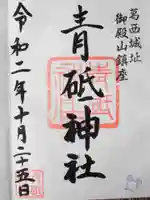 葛西城址
御殿山鎮座
青砥神社
令和二年十月二十五日